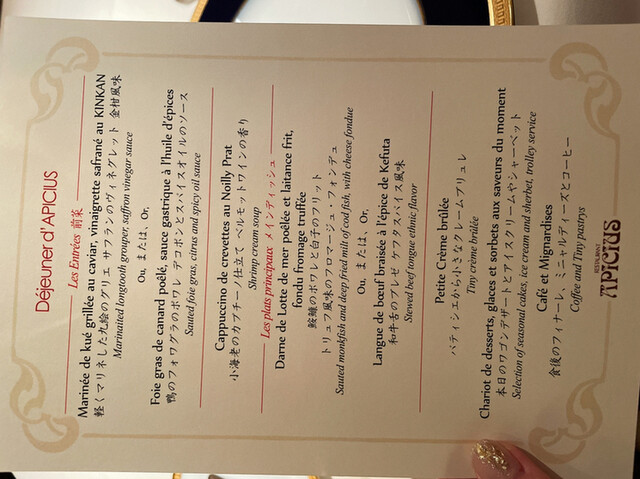 Déjeuner d'APICIUS
Les Entrées 前菜
Marinée de kué grillée au caviar, vinaigrette safrané au KINKAN
軽くマリネした九絵のグリエ サフランのヴィネグレット 金柑風味
Marinaited longtooth grouper, saffron vinegar sauce
Ou, または, Or,
Foie gras de canard poêlé, sauce gastrique à l'huile d'épices
鴨のフォワグラのポワレ デコポンとスパイスオイルのソース
Sauted foie gras, citrus and spicy oil sauce
Cappuccino de crevettes au Noilly Prat
小海老のカプチーノ仕立て ベルモットワインの香り
Shrimp cream soup
Les plats principaux メインディッシュ
Darne de Lotte de mer poêlée et laitance frit,
fondu fromage truffée
鮟鱇のポワレと白子のフリット
トリュフ風味のフロマージュ・フォンデュ
Sauted monkfish and deep fried milt of cod fish, with cheese fondue
Ou, または, Or,
Langue de bœuf braisée à l'épice de Kefuta
和牛舌のブレゼ ケフタスパイス風味
Stewed beef tongue ethnic flavor
Petite Crème brûlée
パティシエから小さなクレームブリュレ
Tiny crème brûlée
Chariot de desserts, glaces et sorbets aux saveurs du moment
本日のワゴンデザートとアイスクリームやシャーベット
Selection of seasonal cakes, ice cream and sherbet, trolley service
Café et Mignardises
食後のフィナーレ、ミニャルディーズとコーヒー
Coffee and Tiny pastrys
RESTAURANT
APICIUS